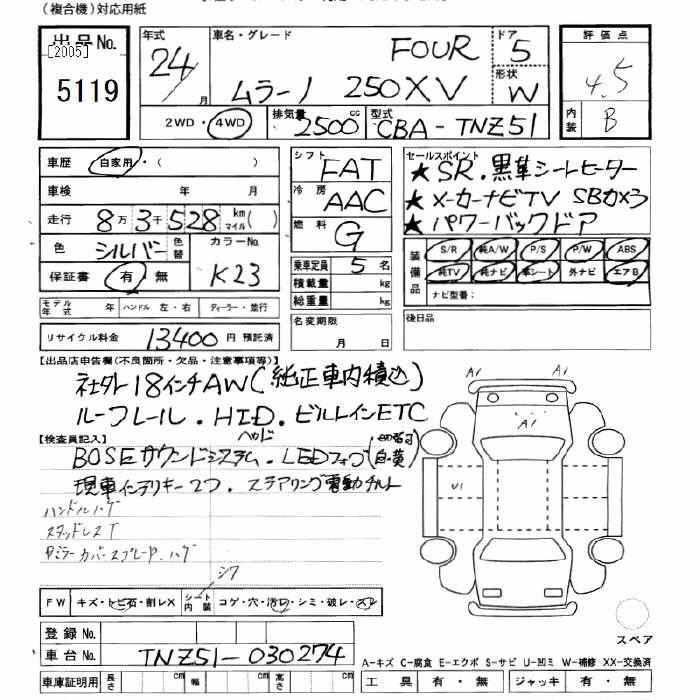 (複合機)対応用紙
出品No.
[2005]
5119
年式 24 月
車名・グレード FOUR
ムラーノ 250XV
ドア 5
形状 W
2WD・4WD
排気量 2500 cc
型式 CBA-TNZ51
評価点
4.5
内装 B
車歴 自家用・( )
車検 年 月
走行 8万3千528 km マイル( )
色 シルバー 色替
カラーNo. K23
保証書 有 無
モデル年式 年 ハンドル 左・右 ディーラー・並行
リサイクル料金 13400 円 預託済
シフト FAT
冷房 AAC
燃料 G
乗車定員 5 名
積載量 kg
総重量 kg
名変期限
月 日
セールスポイント
★SR.黒革シートヒーター
★メーカーナビTV SBカメラ
★パワーバックドア
装備品
S/R 純A/W P/S P/W ABS
純TV 純ナビ 革シート 外ナビ エアB
ナビ型番:
後日品
【出品店申告欄(不良箇所・欠品・注意事項等)】
社外18インチAW(純正車内積込)
ルーフレール.HID.ビルトインETC
【検査員記入】
BOSEサウンドシステム.LEDフォグ(白・黄)
現車インテリキー2つ.ステアリング電動チルト
ハンドルハゲ
スタッドレスT
シワ
FW キズ・トビ石・割レX
シート 内装 コゲ・穴・汚レ・シミ・破レ・スレ
登録No.
車台No. TNZ51-030274
車庫証明用 長さ cm 幅 cm 高さ cm
A1 A1
A1
U1
スペア
A-キズ C-腐食 E-エクボ S-サビ U-凹ミ W-補修 XX-交換済
工具 有・無 ジャッキ 有・無